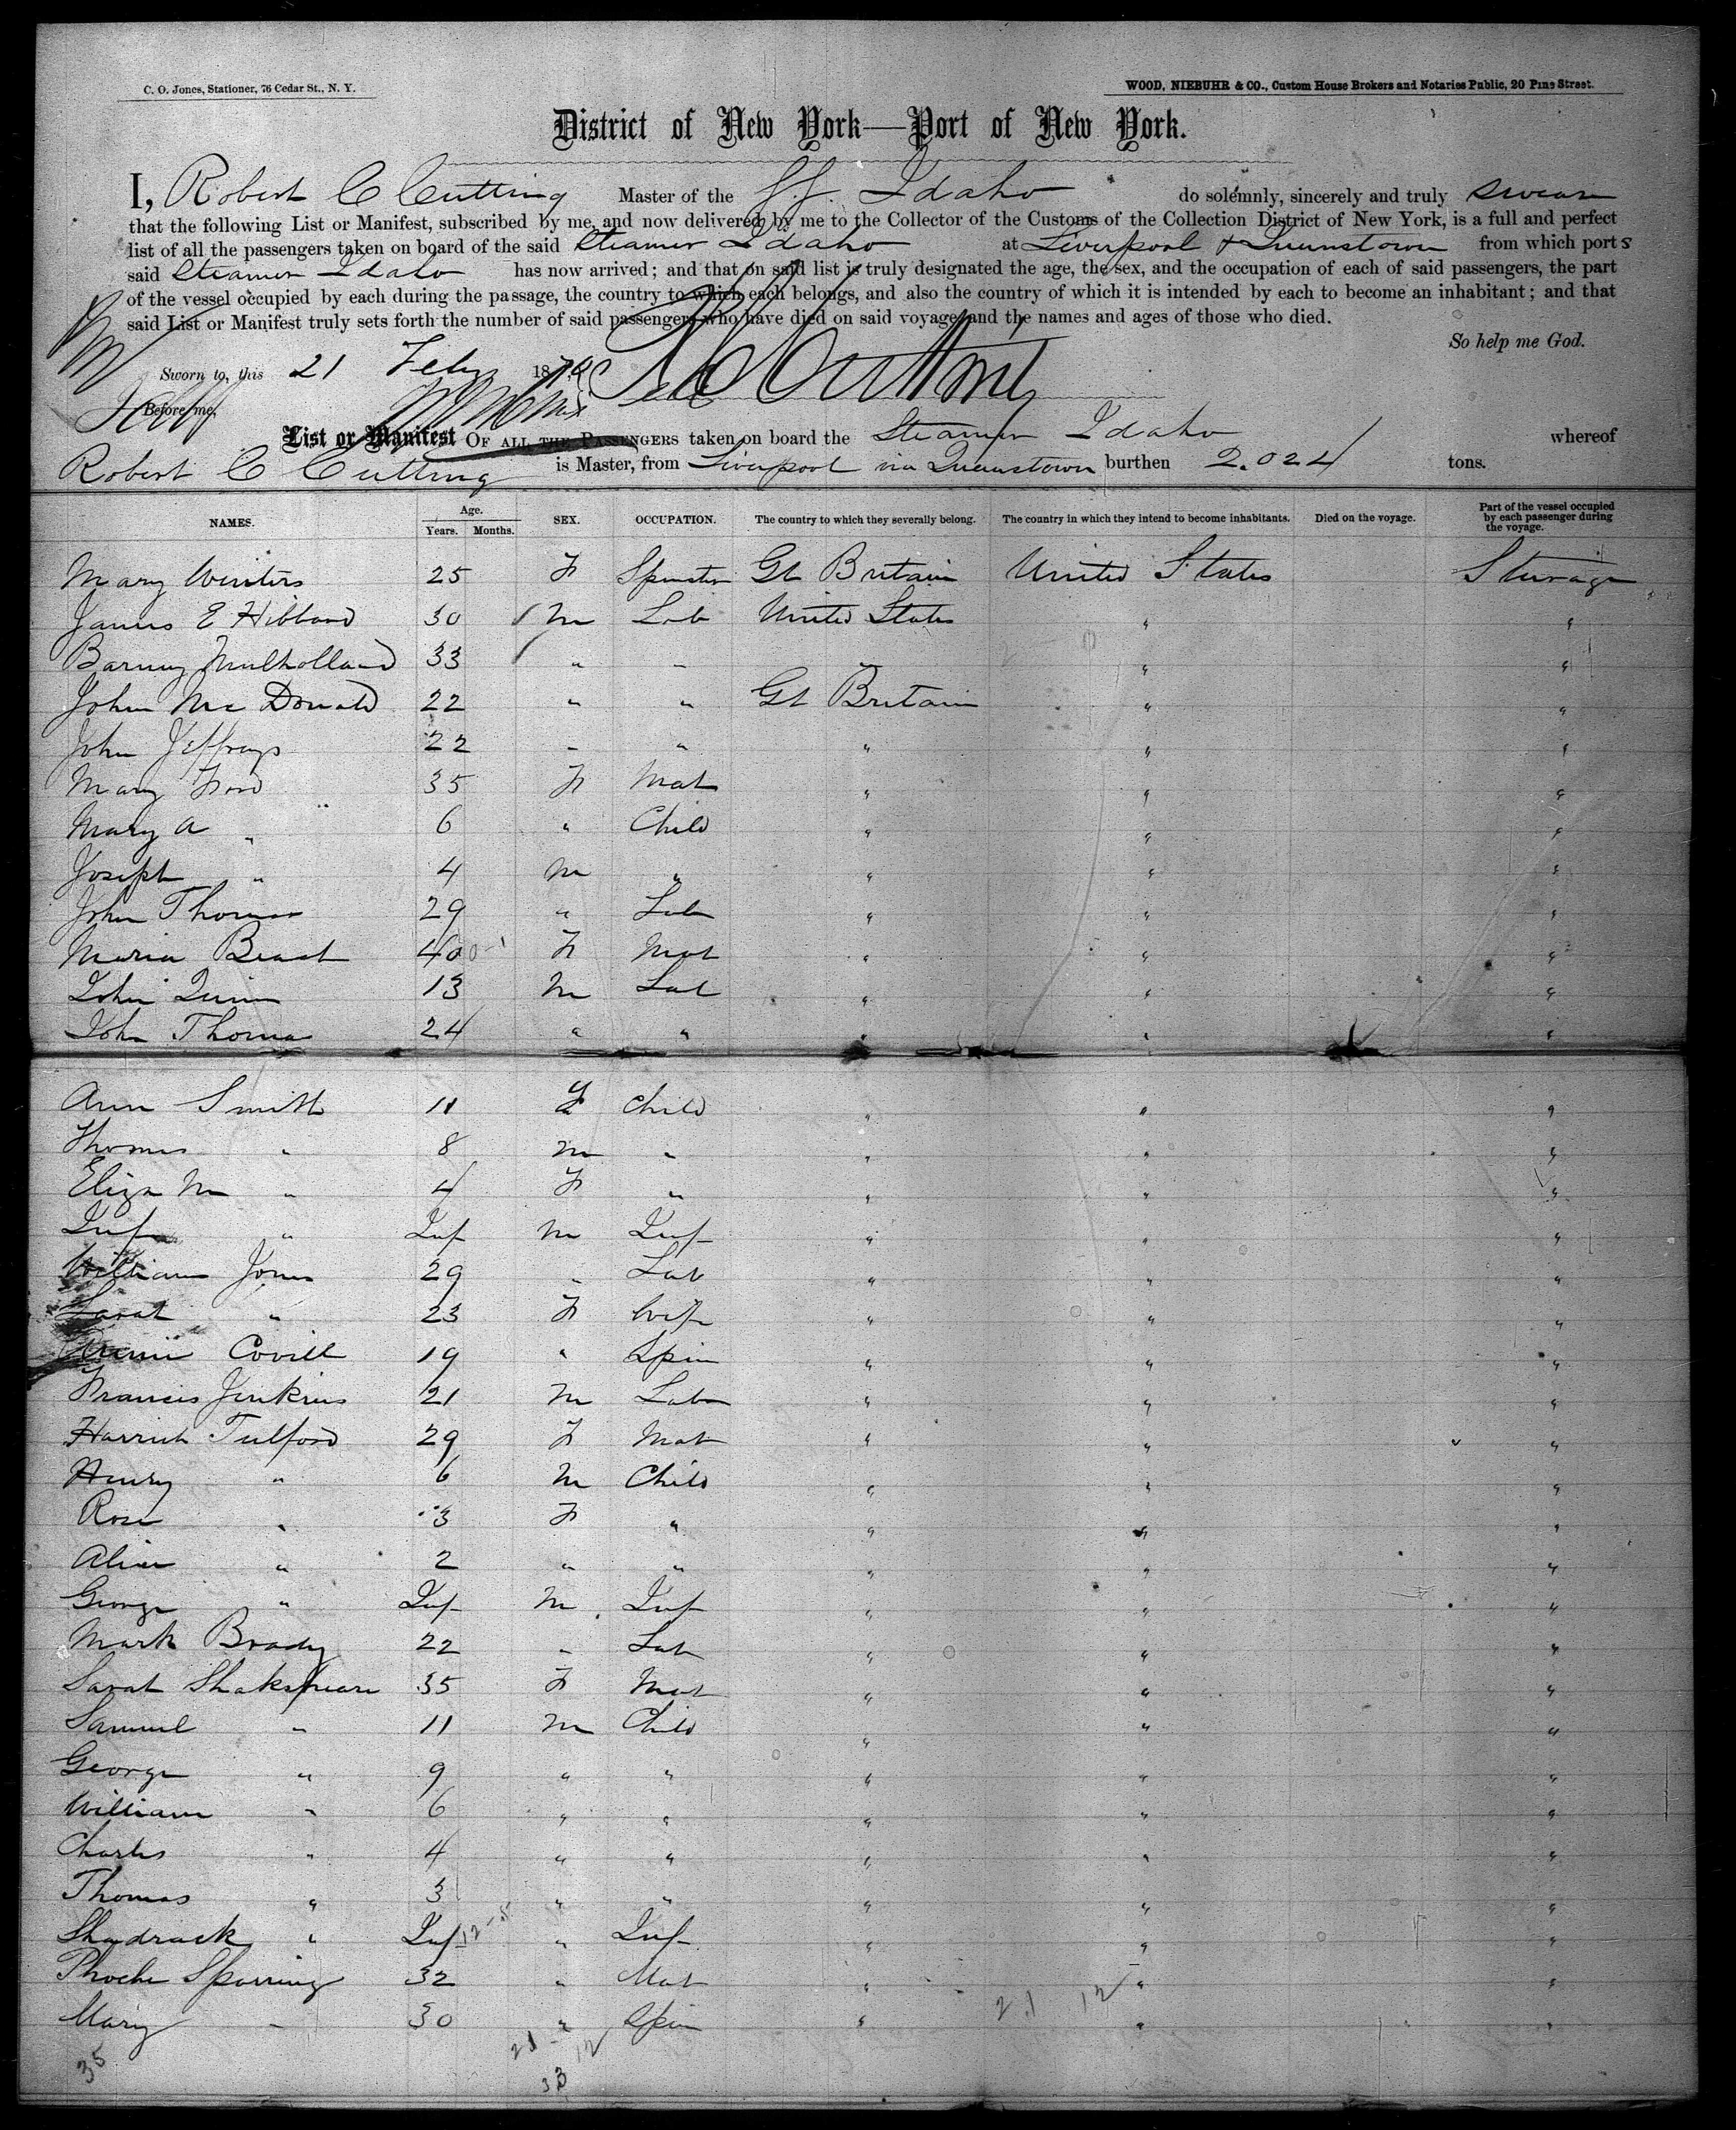 C. O. Jones, Stationer, 76 Cedar St., N. Y.
WOOD, NIEBUHR & CO., Custom House Brokers and Notaries Public, 20 Pine Street.
District of New York—Port of New York.
I, Robert C Cutting Master of the SS. Idaho do solemnly, sincerely and truly swear
that the following List or Manifest, subscribed by me, and now delivered by me to the Collector of the Customs of the Collection District of New York, is a full and perfect
list of all the passengers taken on board of the said Steamer Idaho at Liverpool & Queenstown from which ports
said Steamer Idaho has now arrived; and that on said list is truly designated the age, the sex, and the occupation of each of said passengers, the part
of the vessel occupied by each during the passage, the country to which each belongs, and also the country of which it is intended by each to become an inhabitant; and that
said List or Manifest truly sets forth the number of said passengers who have died on said voyage, and the names and ages of those who died.
So help me God.
Sworn to, this 21 Feby 1870 R C Cutting
Before me,
List or Manifest OF ALL THE PASSENGERS taken on board the Steamer Idaho whereof
Robert C Cutting is Master, from Liverpool via Queenstown burthen 2.024 tons.
NAMES. Age. Years. Months. SEX. OCCUPATION. The country to which they severally belong. The country in which they intend to become inhabitants. Died on the voyage. Part of the vessel occupied by each passenger during the voyage.
Mary Winters 25 F Spinster Gt Britain United States Steerage
James E Hibbard 30 M Lab United States " "
Barney Mulholland 33 " " " " "
John Mc Donald 22 " " Gt Britain " "
John Jeffreys 22 " " " " "
Mary Ford 35 F Mat " " "
Mary A " 6 " Child " " "
Joseph " 4 M " " " "
John Thomas 29 " Lab " " "
Maria Beach 40 F Mat " " "
John Quinn 13 M Lab " " "
John Thomas 24 " " " " "
Ann Smith 11 F Child " " "
Thomas " 8 M " " " "
Eliza M " 4 F " " " "
Inf " Inf M Inf " " "
William Jones 29 " Lab " " "
Sarah " 23 F Wife " " "
Covill 19 " Spin " " "
Francis Jenkins 21 M Labr " " "
Harriet Tulford 29 F Mat " " "
Henry " 6 M Child " " "
Rose " 3 F " " " "
Alice " 2 " " " " "
George " Inf M Inf " " "
Mark Brady 22 " Lab " " "
Sarah Shakspeare 35 F Mat " " "
Samuel " 11 M Child " " "
George " 9 " " " " "
William " 6 " " " " "
Charles " 4 " " " " "
Thomas " 3 " " " " "
Shadrack " Inf 12-5 " Inf " " "
Phoebe Sparring 32 " Mat " " "
Mary " 30 " Spin " " "
21 12
35 21 12
33